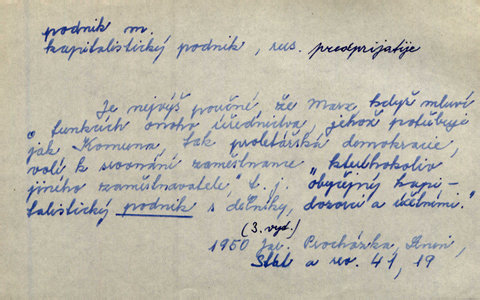 podnik m.
kapitalistický podnik, rus. predprijatije
Je nejvýš poučné, že Marx, když mluví
o funkcích onoho úřednictva, jehož potřebuje
jak Komuna, tak proletářská demokracie,
volí k srovnání zaměstnance "kteréhokoliv
jiného zaměstnavatele," t. j. "obyčejný kapi-
talistický podnik s dělníky, dozorci a účetními."
(3. vyd.)
1950 Jar. Procházka, Lenin,
Stát a rev. 41, 19